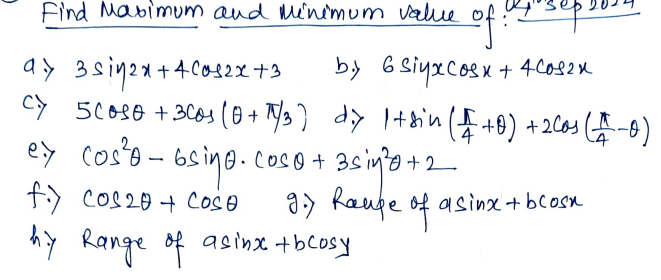 Find Maximum and Minimum value of: Sep 2024
a> 3sin2x+4cos2x+3 b> 6sinxcosx + 4cos2x
c> 5cosθ+3cos(θ+π/3) d> 1+sin(π/4+θ)+2cos(π/4-θ)
e> cos²θ-6sinθ.cosθ+3sin²θ+2
f> cos2θ+cosθ g> Range of asinx+bcosx
h> Range of asinx+bcosy